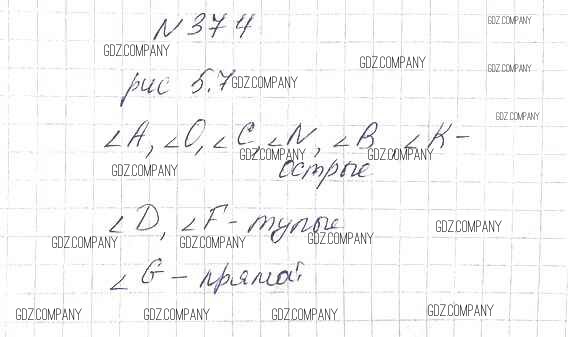 N 374
GDZ.COMPANY
GDZ.COMPANY
GDZ.COMPANY
GDZ.COMPANY
рис 5.7
GDZ.COMPANY
GDZ.COMPANY
∠A, ∠O, ∠C, ∠N, ∠B, ∠K –
GDZ.COMPANY
GDZ.COMPANY
острые
GDZ.COMPANY
∠D, ∠F – тупые
GDZ.COMPANY
GDZ.COMPANY
GDZ.COMPANY
GDZ.COMPANY
∠G – прямой
GDZ.COMPANY
GDZ.COMPANY
GDZ.COMPANY
GDZ.COMPANY